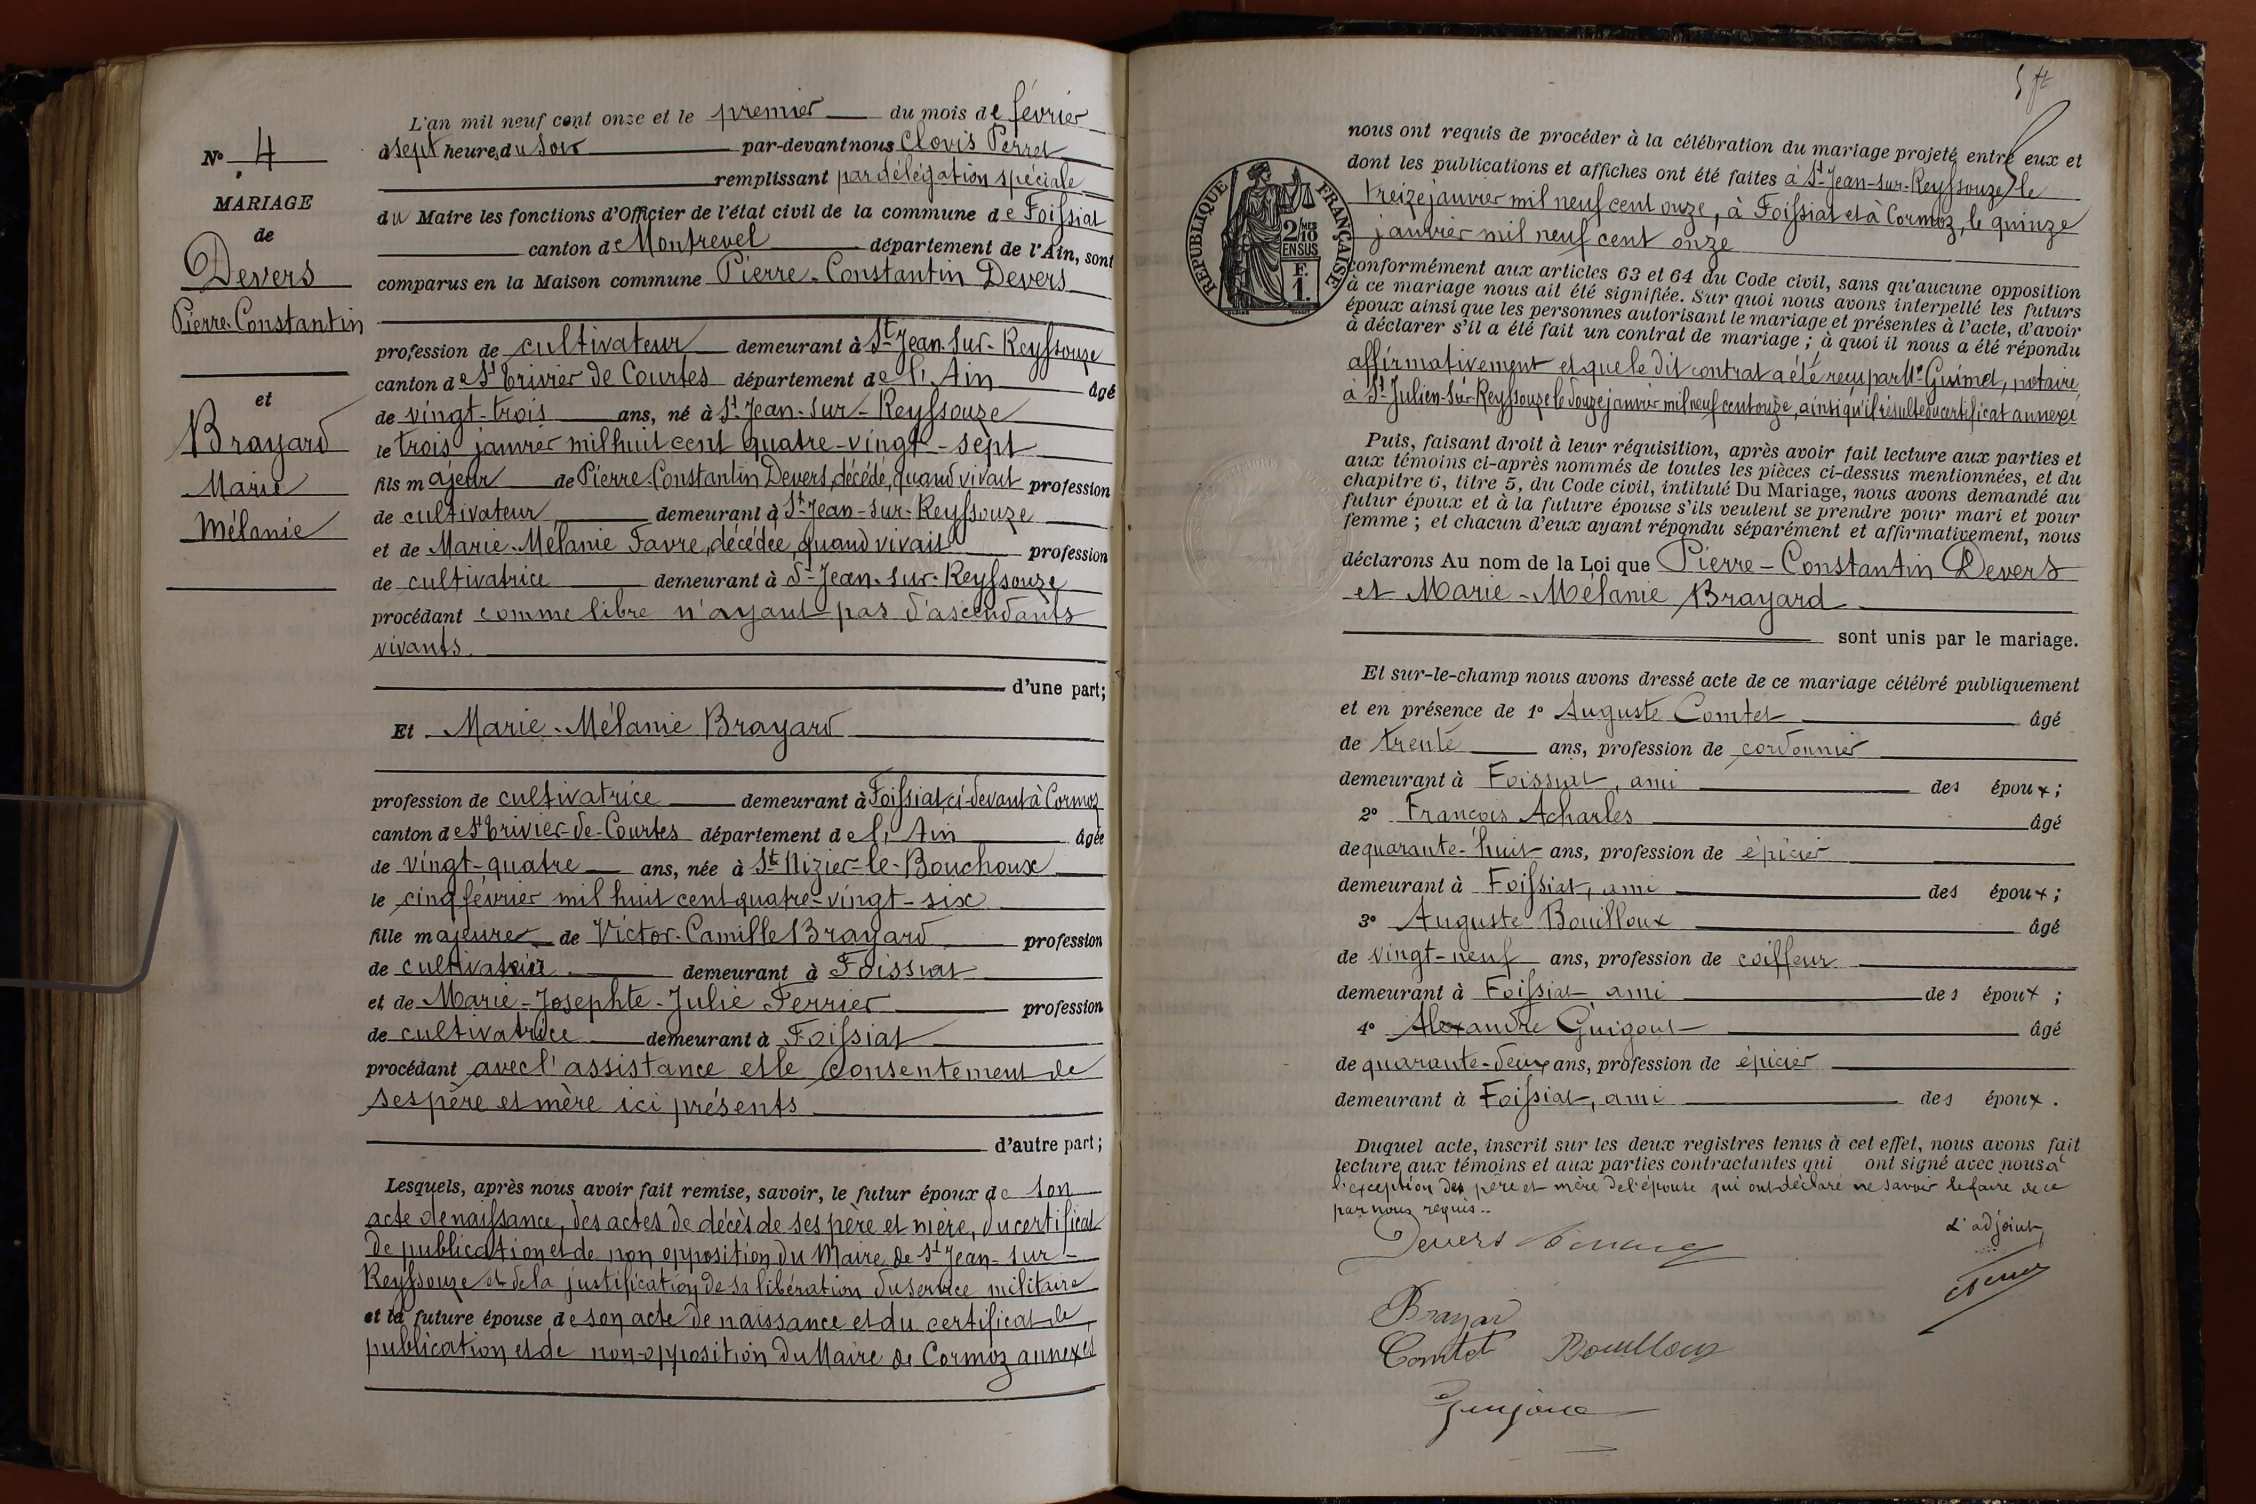 N° 4
MARIAGE
de
Devers
Pierre-Constantin
et
Brayard
Marie
Mélanie
L'an mil neuf cent onze et le premier du mois de février
à sept heures du soir par-devant nous Clovis Perret
remplissant par délégation spéciale
du Maire les fonctions d'Officier de l'état civil de la commune de Foissiat
canton de Montrevel département de l'Ain, sont
comparus en la Maison commune Pierre-Constantin Devers
profession de cultivateur demeurant à St-Jean-sur-Reyssouze
canton de St Trivier de Courtes département de l'Ain âgé
de vingt-trois ans, né à St-Jean-sur-Reyssouze
le trois janvier mil huit cent quatre-vingt-sept
fils majeur de Pierre-Constantin Devers, décédé, quand vivait profession
de cultivateur demeurant à St-Jean-sur-Reyssouze
et de Marie-Mélanie Favre, décédée, quand vivait profession
de cultivatrice demeurant à St-Jean-sur-Reyssouze
procédant comme libre n'ayant pas d'ascendants
vivants
d'une part;
Et Marie-Mélanie Brayard
profession de cultivatrice demeurant à Foissiat, ci-devant à Cormoz
canton de St Trivier-de-Courtes département de l'Ain âgée
de vingt-quatre ans, née à St-Nizier-le-Bouchoux
le cinq février mil huit cent quatre-vingt-six
fille majeure de Victor-Camille Brayard profession
de cultivateur demeurant à Foissiat
et de Marie-Josephte-Julie Ferrier profession
de cultivatrice demeurant à Foissiat
procédant avec l'assistance et le consentement de
ses père et mère ici présents
d'autre part;
Lesquels, après nous avoir fait remise, savoir, le futur époux de son
acte de naissance, des actes de décès de ses père et mère, du certificat
de publication et de non opposition du Maire de St Jean-sur-
Reyssouze et de la justification de sa libération du service militaire
et la future épouse de son acte de naissance et du certificat de
publication et de non-opposition du Maire de Cormoz annexés
5 ft
RÉPUBLIQUE FRANÇAISE
2/10 MES
EN SUS
F.
1.
nous ont requis de procéder à la célébration du mariage projeté entre eux et
dont les publications et affiches ont été faites à St-Jean-sur-Reyssouze, le
treize janvier mil neuf cent onze, à Foissiat et à Cormoz, le quinze
janvier mil neuf cent onze
conformément aux articles 63 et 64 du Code civil, sans qu'aucune opposition
à ce mariage nous ait été signifiée. Sur quoi nous avons interpellé les futurs
époux ainsi que les personnes autorisant le mariage et présentes à l'acte, d'avoir
à déclarer s'il a été fait un contrat de mariage ; à quoi il nous a été répondu
affirmativement et que le dit contrat a été reçu par Me Guimet, notaire
à St Julien-sur-Reyssouze le douze janvier mil neuf cent onze, ainsi qu'il résulte du certificat annexé
Puis, faisant droit à leur réquisition, après avoir fait lecture aux parties et
aux témoins ci-après nommés de toutes les pièces ci-dessus mentionnées, et du
chapitre 6, titre 5, du Code civil, intitulé Du Mariage, nous avons demandé au
futur époux et à la future épouse s'ils veulent se prendre pour mari et pour
femme ; et chacun d'eux ayant répondu séparément et affirmativement, nous
déclarons Au nom de la Loi que Pierre-Constantin Devers
et Marie-Mélanie Brayard
sont unis par le mariage.
Et sur-le-champ nous avons dressé acte de ce mariage célébré publiquement
et en présence de 1° Auguste Comtet âgé
de trente ans, profession de cordonnier
demeurant à Foissiat, ami des époux ;
2° François Acharles âgé
de quarante-huit ans, profession de épicier
demeurant à Foissiat, ami des époux ;
3° Auguste Bouilloux âgé
de vingt-neuf ans, profession de coiffeur
demeurant à Foissiat, ami des époux ;
4° Alexandre Guigout âgé
de quarante-deux ans, profession de épicier
demeurant à Foissiat, ami des époux.
Duquel acte, inscrit sur les deux registres tenus à cet effet, nous avons fait
lecture aux témoins et aux parties contractantes qui ont signé avec nous à
l'exception des père et mère de l'épouse qui ont déclaré ne savoir le faire de ce
par nous requis..
Devers
L'adjoint
Perret
Brayar
Comtet Bouilloux